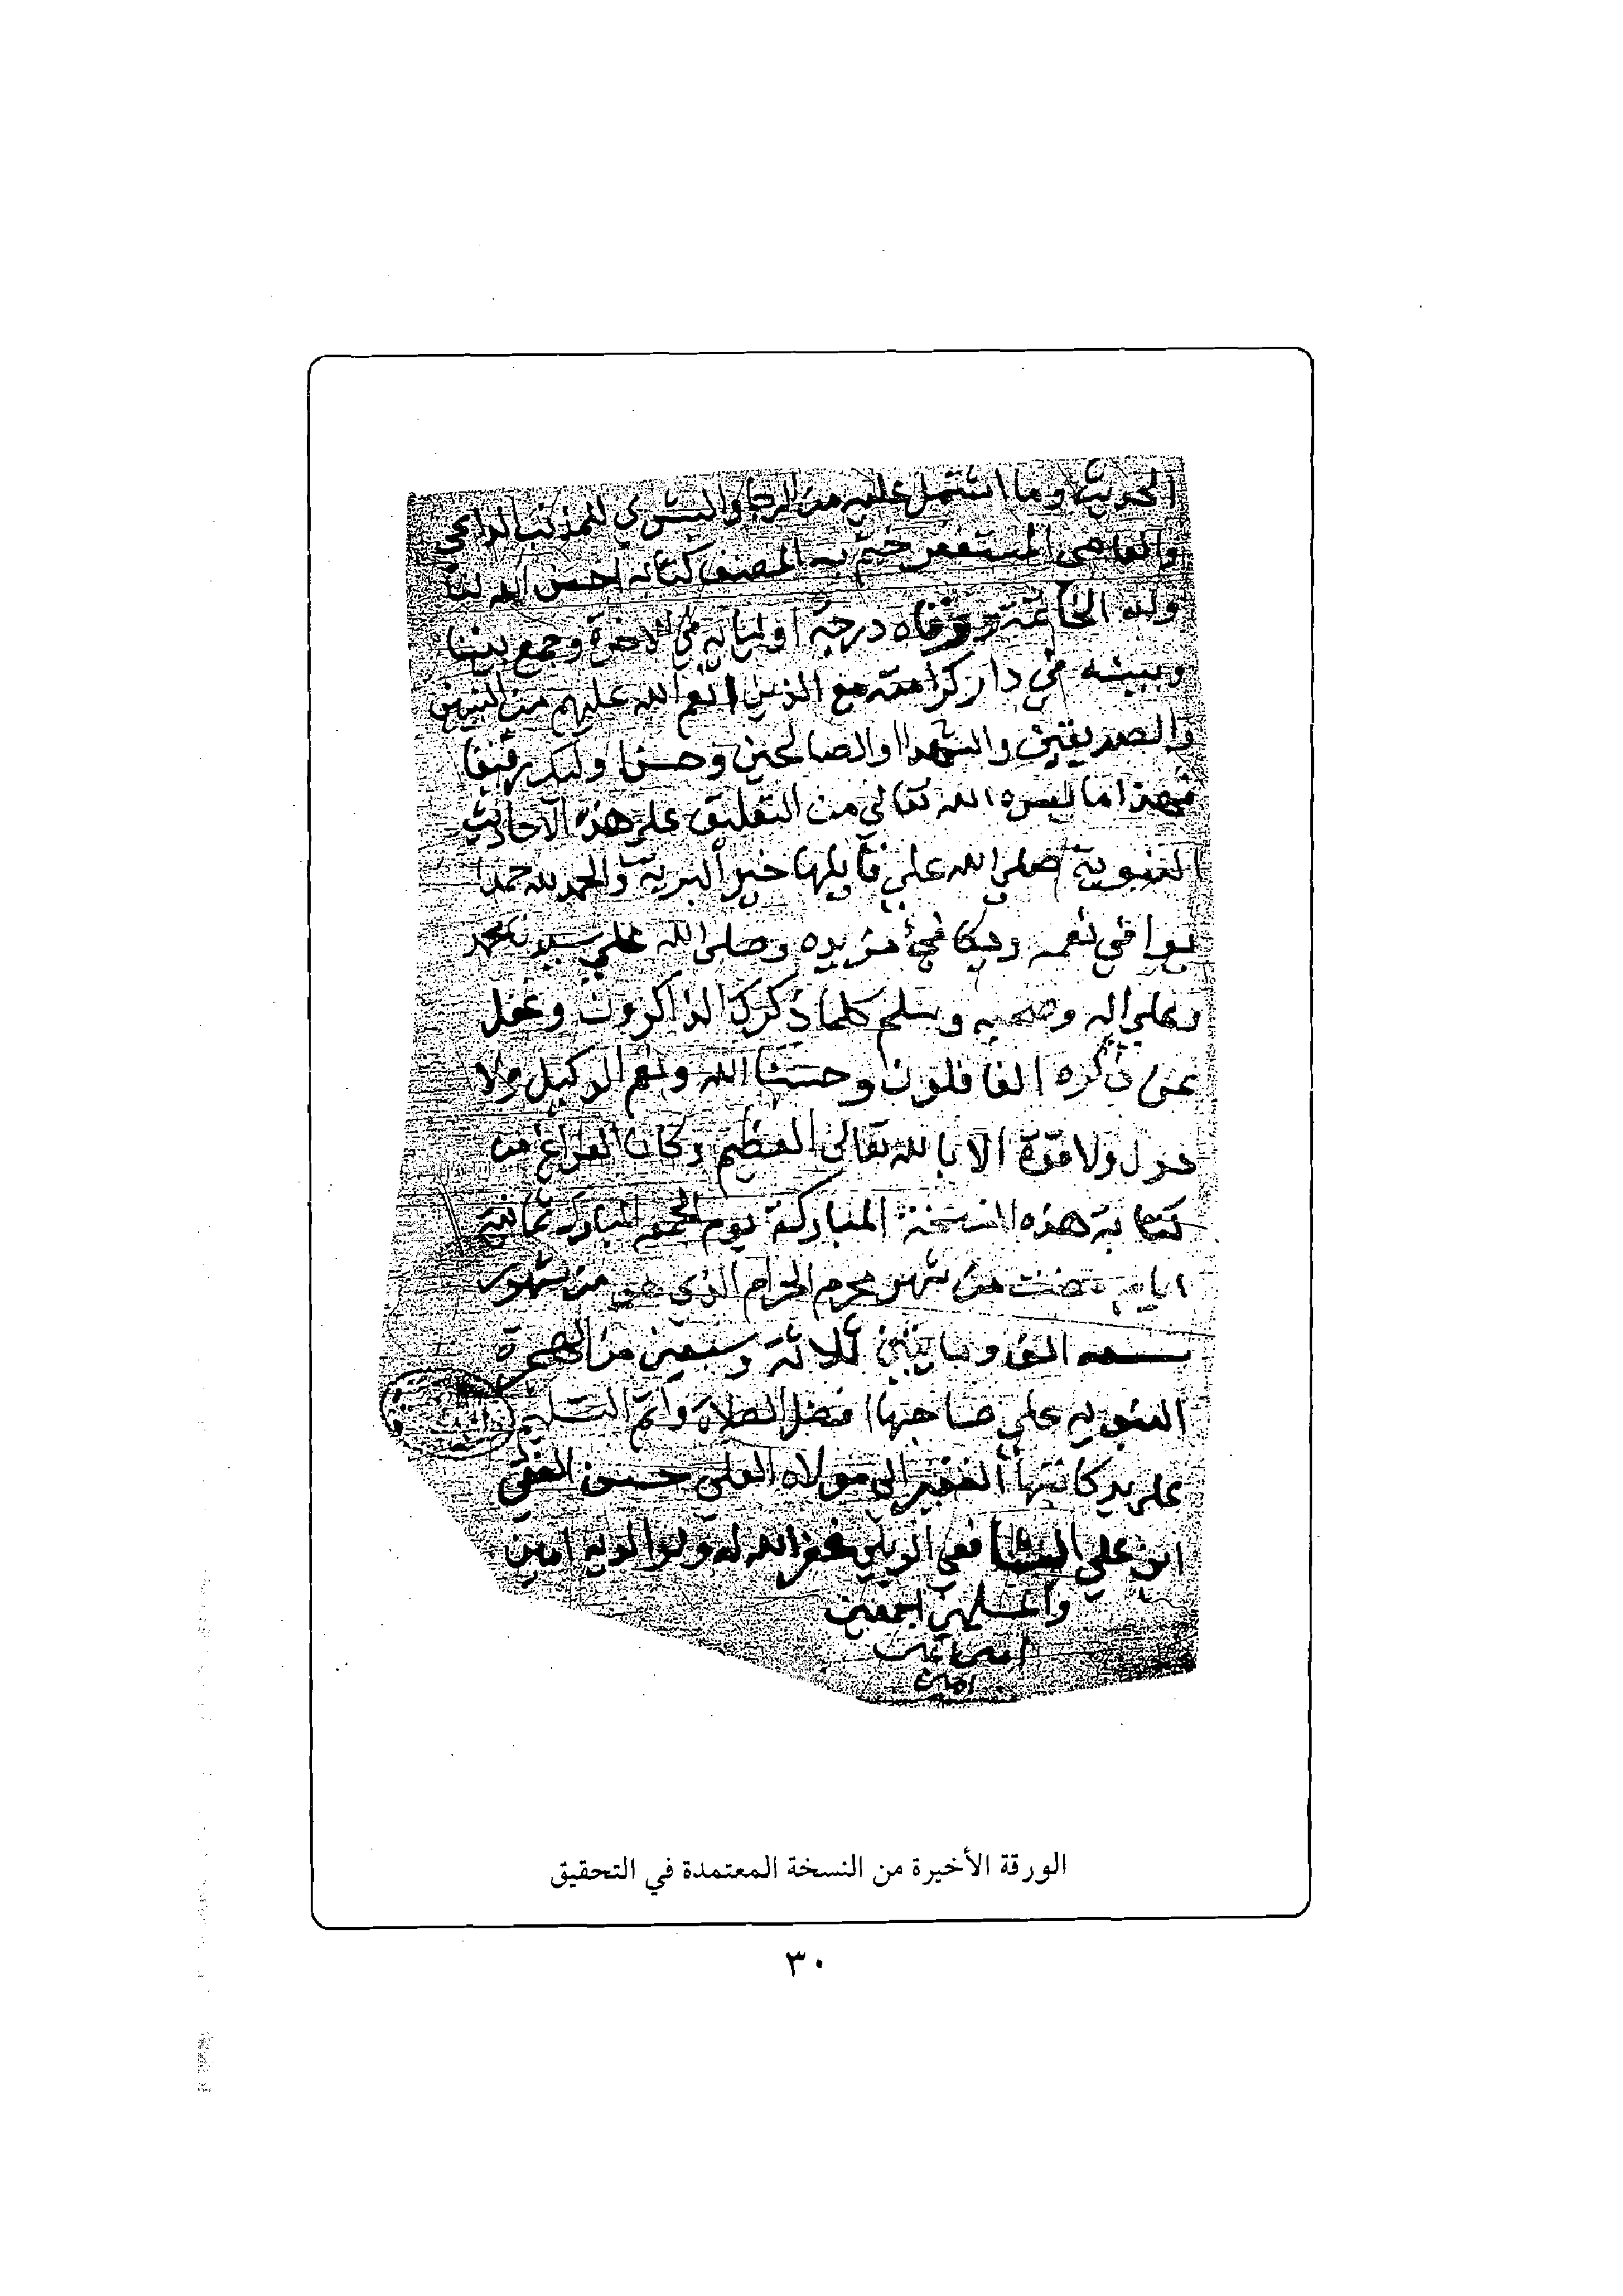 الحديث وما اشتمل عليه من الرجا والبشرى للمذنب الراجي
والعاصي المستغفر ختم به المصنف كتابه احسن الله لنا
وله الخاتمة ورقاه درجة اوليائه في الاخرة وجمع بيننا
وبينه في دار كرامته مع الذين انعم الله عليهم من النبيين
والصديقين والشهدا والصالحين وحسن اوليك رفيقا
فهذا ما يسره الله تعالى من التعليق على هذه الاحاديث
النبوية صلى الله على قايلها خير البرية والحمد لله حمدا
يوافي نعمه ويكافئ مزيده وصلى الله على سيدنا محمد
وعلى اله وصحبه وسلم كلما ذكرك الذاكرون وغفل
عن ذكره الغافلون وحسبنا الله ونعم الوكيل ولا
حول ولا قوة الا بالله تعالى العظيم وكان الفراغ من
كتابة هذه النسخة المباركة يوم الجمعة المبارك ثمانية
ايام مضت من شهر محرم الحرام الذي هو من شهور
سنة الف ومايتين ثلاثة وسبعين من الهجرة
النبوية على صاحبها افضل الصلاة واتم التسليم
على يد كاتبها الفقير الى مولاه العلي حسن الفقي
ابن علي الشافعي غفر الله له ولوالديه امين
والمسلمين اجمعين
امين
امين
الورقة الأخيرة من النسخة المعتمدة في التحقيق
٣٠